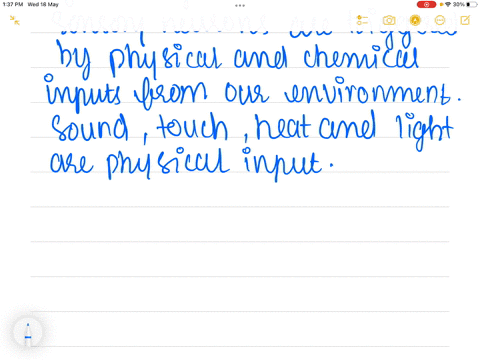 1:37 PM Wed 18 May
30%
by physical and chemical
inputs from our environment.
Sound, touch, heat and light
are physical input.